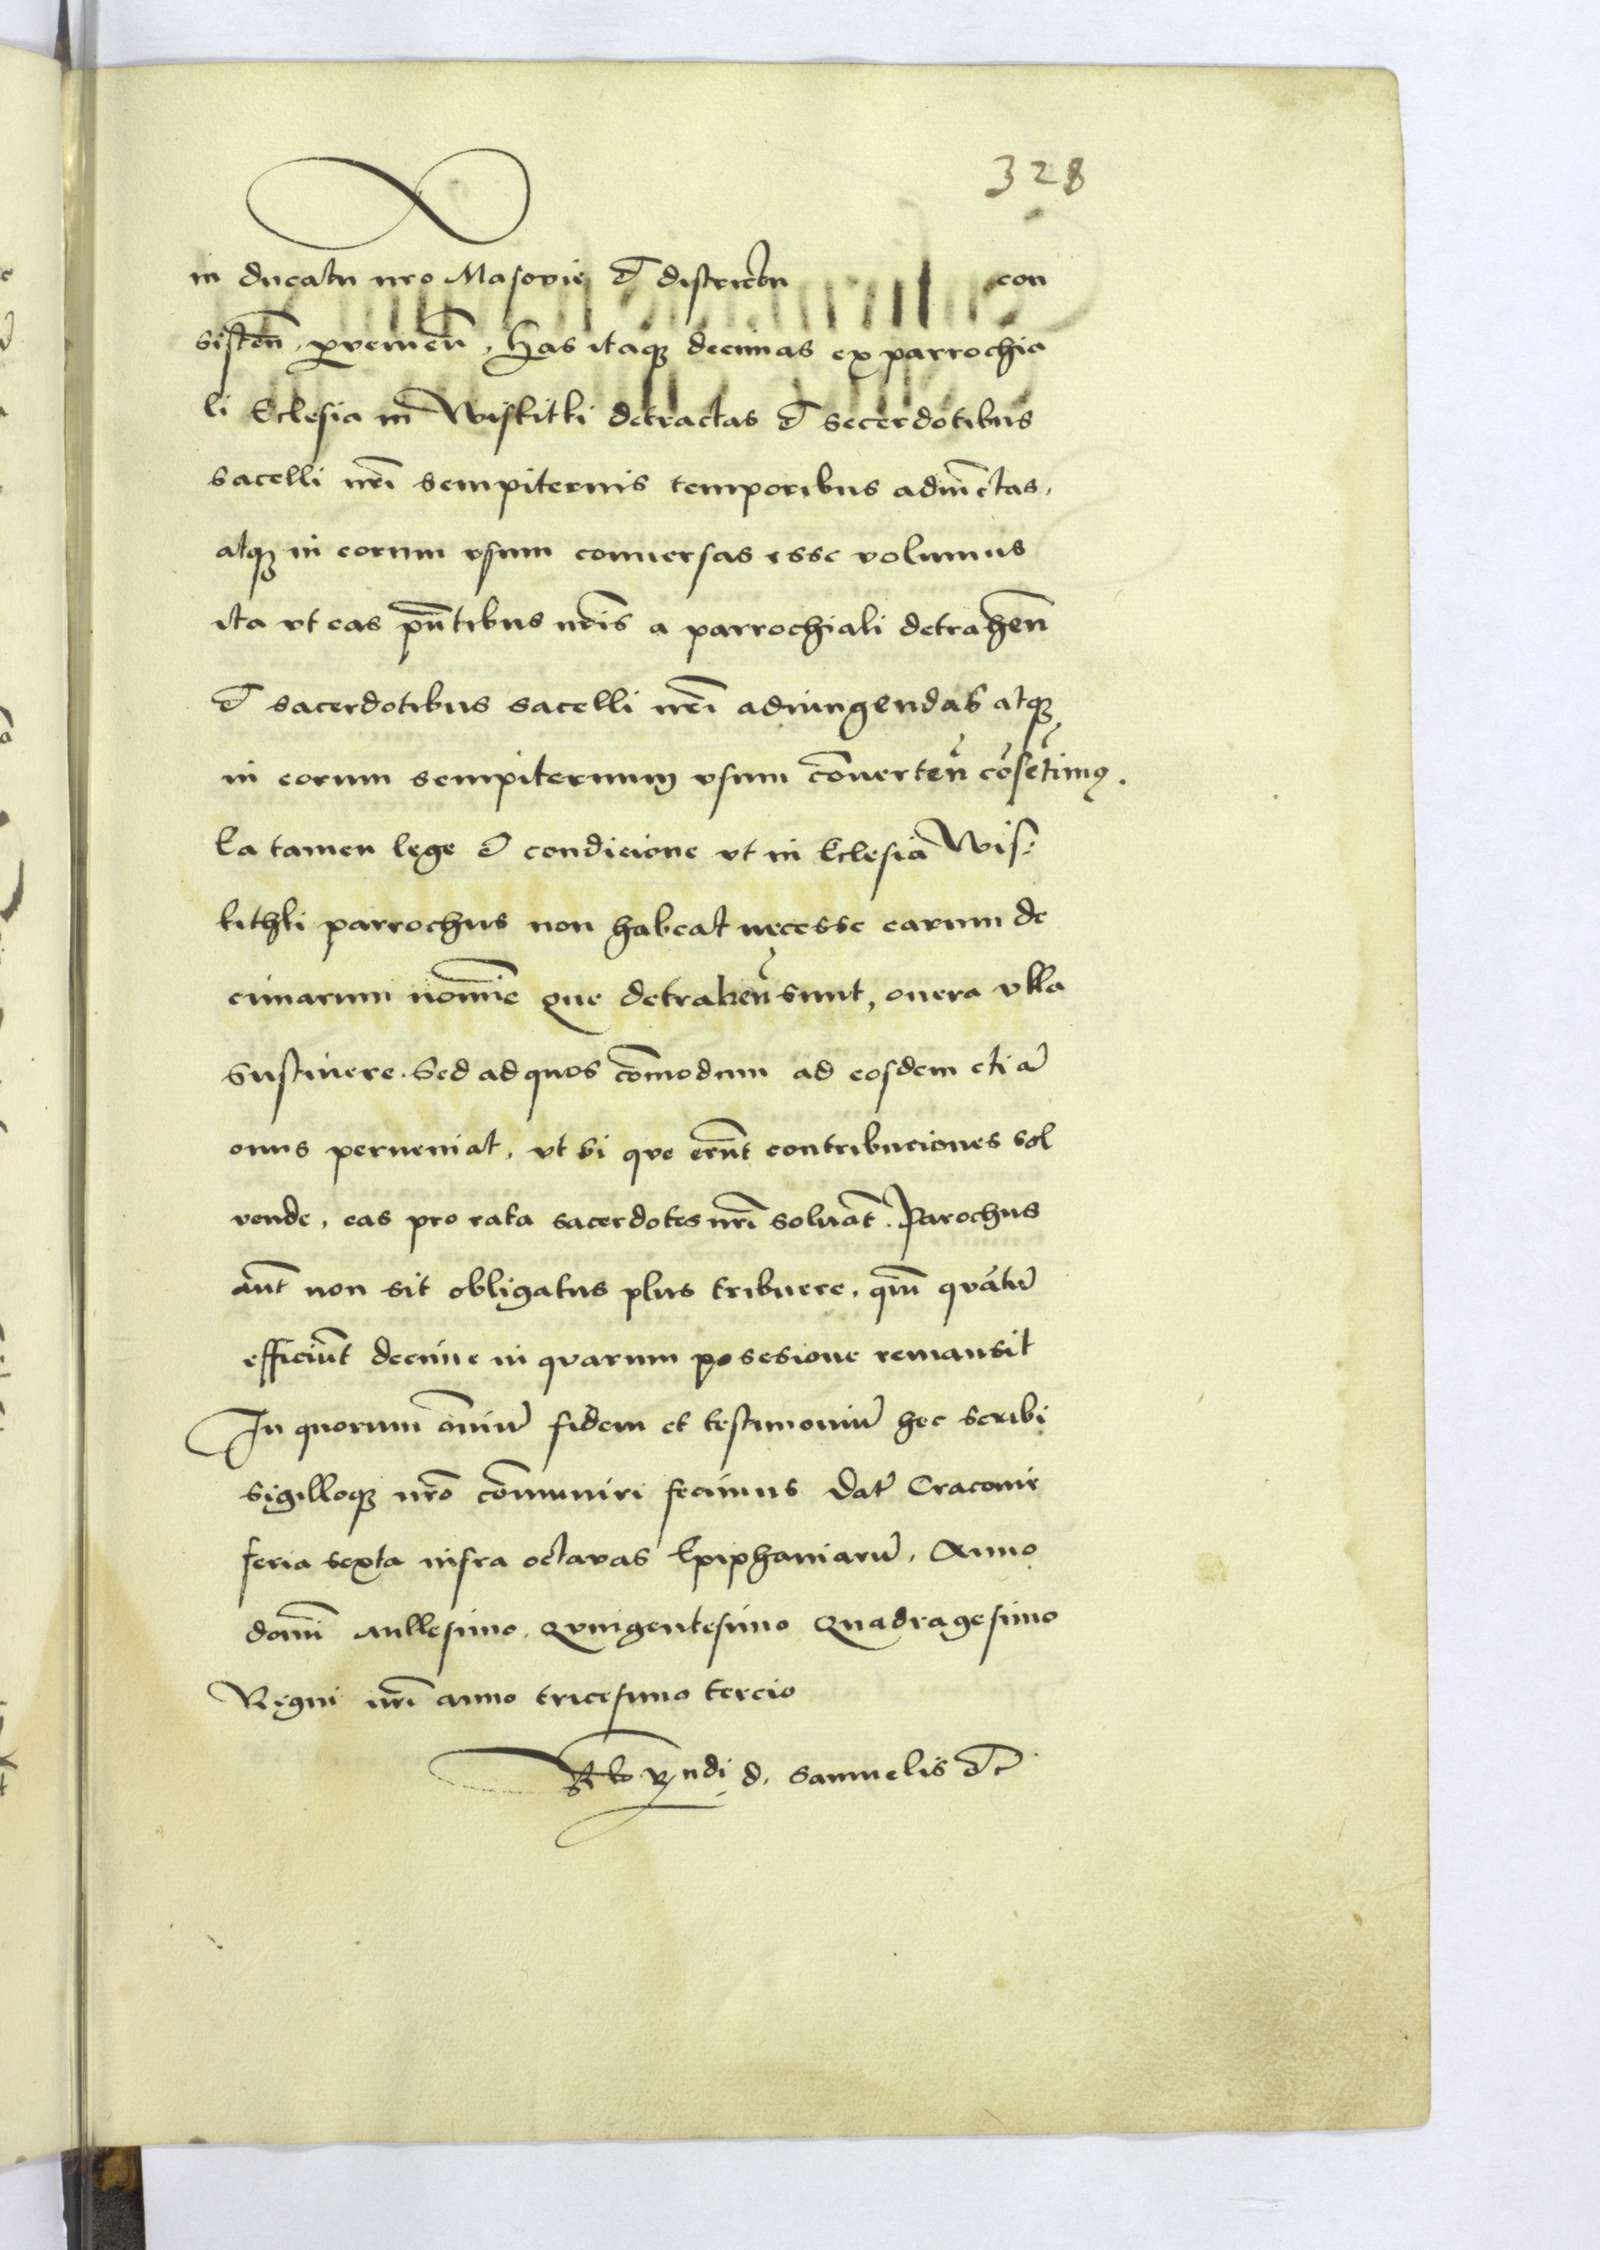 328
in ducatu nro Masovie et districtu con
sisten, provenien, Has itaq; decimas ex parrochia
li Eclesia in Wiskitki detractas et secerdotibus
sacelli nri sempiternis temporibus adiunctas,
atq; in eorum vsum conuersas esse volumus
ita vt eas pntibus nris a parrochiali detrahen
et sacerdotibus sacelli nri adiungendas atq;
in eorum sempiternum vsum conuerten cosetimus.
Ea tamen lege et condicione vt in Eclesia Wis=
kithki parrochus non habeat necesse earum de
cimarum nomine que detrahen sunt, onera vlla
sustinere. Sed ad quos comodum ad eosdem etia
onus perueniat, vt si que erunt contribuciones sol
vende, eas pro rata sacerdotes nri soluat. Parochus
aut non sit obligatus plus tribuere, qm quatu
efficiunt decime in quarum posesione remansit
In quorum omniu fidem et testimoniu hec scribi
sigilloq; nro comuniri fecimus Dat Cracovie
feria sexta infra octavas Epiphaniaru, Anno
domi Millesimo, Quingentesimo Quadragesimo
Regni nri anno tricesimo tercio
Rndi d. Samuelis etc